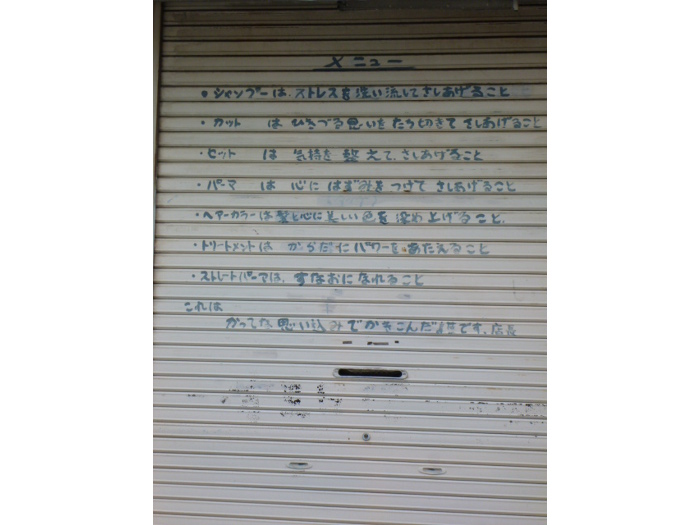 メニュー
・シャンプーは、ストレスを洗い流してさしあげること
・カット は ひきづる思いをたち切きてさしあげること
・セット は 気持を整えて、さしあげること
・パーマ は 心に はずみをつけて さしあげること
・ヘアーカラーは髪と心に美しい色を染め上げること、
・トリートメントは からだにパワーを、あたえること
・ストレートパーマは、すなおになれること
これは
かってな思い込みでかきこんだ です。店長